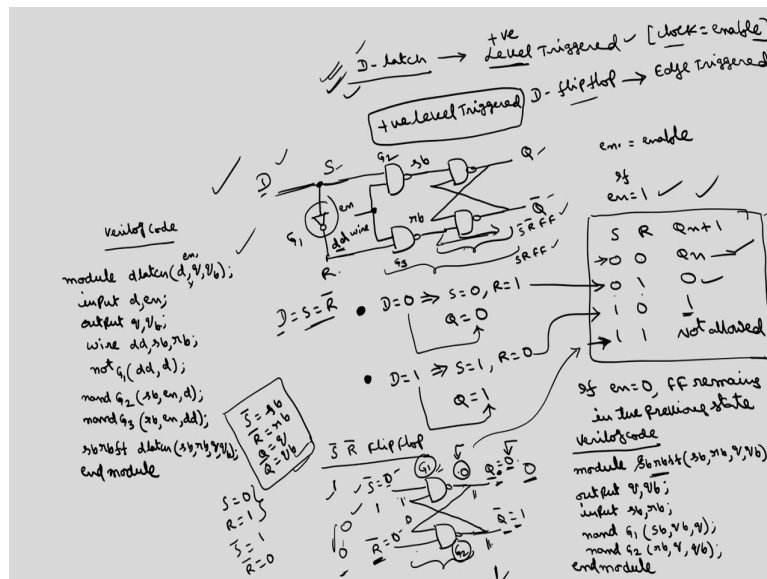 D-latch → +ve Level Triggered [clock = enable]
+ve level Triggered D-flipflop → Edge Triggered
en. = enable
If
en=1
D S G2 sb Q
G1 en
dd wire
rb Q̅
R G3 S̅ R̅ FF
SR FF
S R Qn+1
0 0 Qn
0 1 0
1 0 1
1 1 Not allowed
If en=0, FF remains
in the previous state
D=S=R̅
D=0 ⇒ S=0, R=1
Q=0
D=1 ⇒ S=1, R=0
Q=1
verilog code
module dlatch(d,en,q,qb);
input d,en;
output q,qb;
wire dd,sb,rb;
not G1(dd,d);
nand G2(sb,en,d);
nand G3(rb,en,dd);
sbrbff dlatch(sb,rb,q,qb);
endmodule
S̅=sb
R̅=rb
Q=q
Q̅=qb
S=0
R=1
S̅=1
R̅=0
S̅ R̅ flipflop
G1
Q=0
R̅=0
Q̅=1
G2
verilog code
module sbrbff(sb,rb,q,qb)
output q,qb;
input sb,rb;
nand G1(sb,qb,q);
nand G2(rb,q,qb);
endmodule